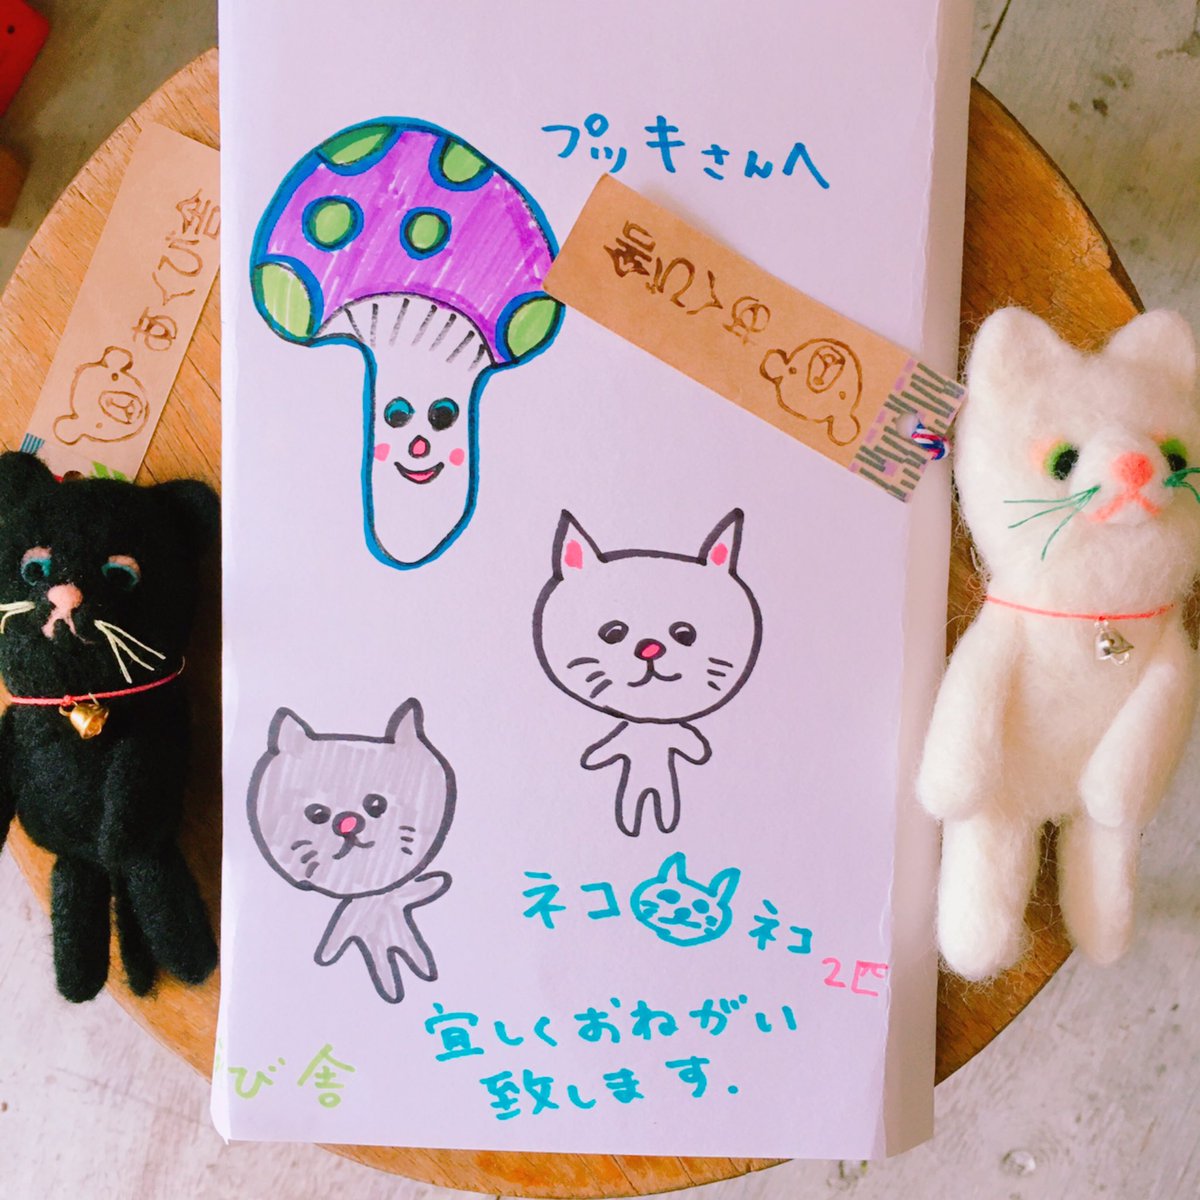 プッキさんへ
あくび舎
あくび舎
ネコ
ネコ
2匹
宜しくおねがい
致します.
び舎